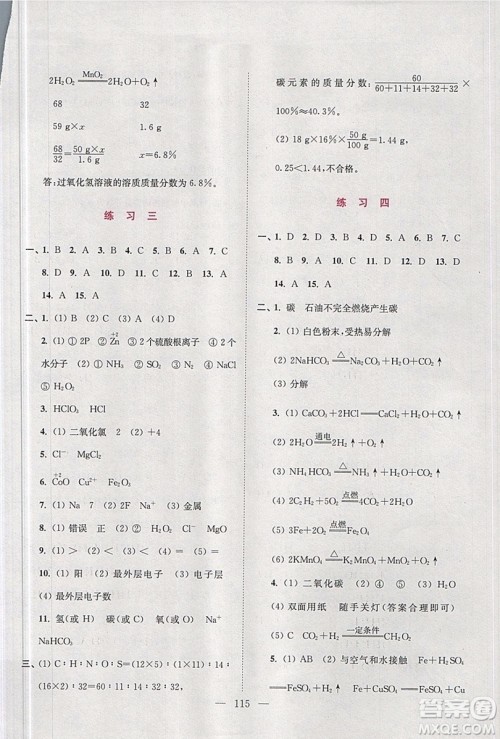 2H₂O₂ =MnO₂= 2H₂O+O₂↑
68 32
59 g×x 1.6 g
68/32 = 50 g×x/1.6 g x=6.8%
答:过氧化氢溶液的溶质质量分数为6.8%。
练 习 三
一、1. B 2. A 3. D 4. D 5. B 6. B 7. C
8. D 9. D 10. A 11. D 12. A 13. A
14. A 15. A
二、1. (1) D (2) C (3) B (4) A
2. (1) ① 2P ② Zn(+2) ③ 2个硫酸根离子 ④ 2个
水分子 (2) ① NH₃ ② SO₂ ③ NaCl ④
H₂O ⑤ H₂O₂
3. HClO₃ HNO₃
4. (1) 二氧化氯 2 (2) +4
5. Cl⁻ MgCl₂
6. CoO(+2) Cu²⁺ Fe₂O₃
7. (1) Na 7 (2) Na⁺ (3) 金属
8. (1) 错误 正 (2) A (3) A
9. (1) Na (2) Cl⁻ (3) MgCl₂
10. (1) 阳 (2) 最外层电子 (3) 最外层电子
(4) 最外层电子数
11. 氢(或 H) 碳(或 C) 氧(或 O) Na⁺
NaHCO₃
三、(1) C∶H∶N∶O∶S=(12×16)∶(1×11)∶14∶
(16×2)∶32=60∶11∶14∶32∶32 (2)
碳元素的质量分数:60/(60+11+14+32+32)×
100%≈40.3%。
(2) 18 g×16%×50 g/100 g=1.44 g
0.25<1.44,不合格。
练 习 四
一、1. D 2. D 3. C 4. B 5. A 6. D 7. C
8. C 9. B 10. B 11. A 12. D 13. D
14. A 15. D
二、1. 碳 石油不完全燃烧产生碳
2. (1) 白色粉末,受热易分解
(2) 2NaHCO₃ =△= Na₂CO₃+H₂O+CO₂↑
(3) 分解
3. (1) CaCO₃+2HCl══CaCl₂+H₂O+CO₂↑
(2) 2H₂O =通电= 2H₂↑+O₂↑
(3) NH₄HCO₃ =△= NH₃↑+H₂O+CO₂↑
(4) 2C₂H₂+5O₂ =点燃= 4CO₂+2H₂O
(5) 3Fe+2O₂ =点燃= Fe₃O₄
(6) 2KMnO₄ =△= K₂MnO₄+MnO₂+O₂↑
4. (1) 二氧化碳 (2) ① (3) ⑤
(4) 双面用纸 随手关灯(答案合理即可)
(5) CO₂+3H₂ =一定条件= CH₃OH+H₂O
5. (1) AB (2) 与空气和水接触 (3) Fe+H₂SO₄
══FeSO₄+H₂↑ Fe+CuSO₄══FeSO₄+Cu
115
答案
MXQE.COM